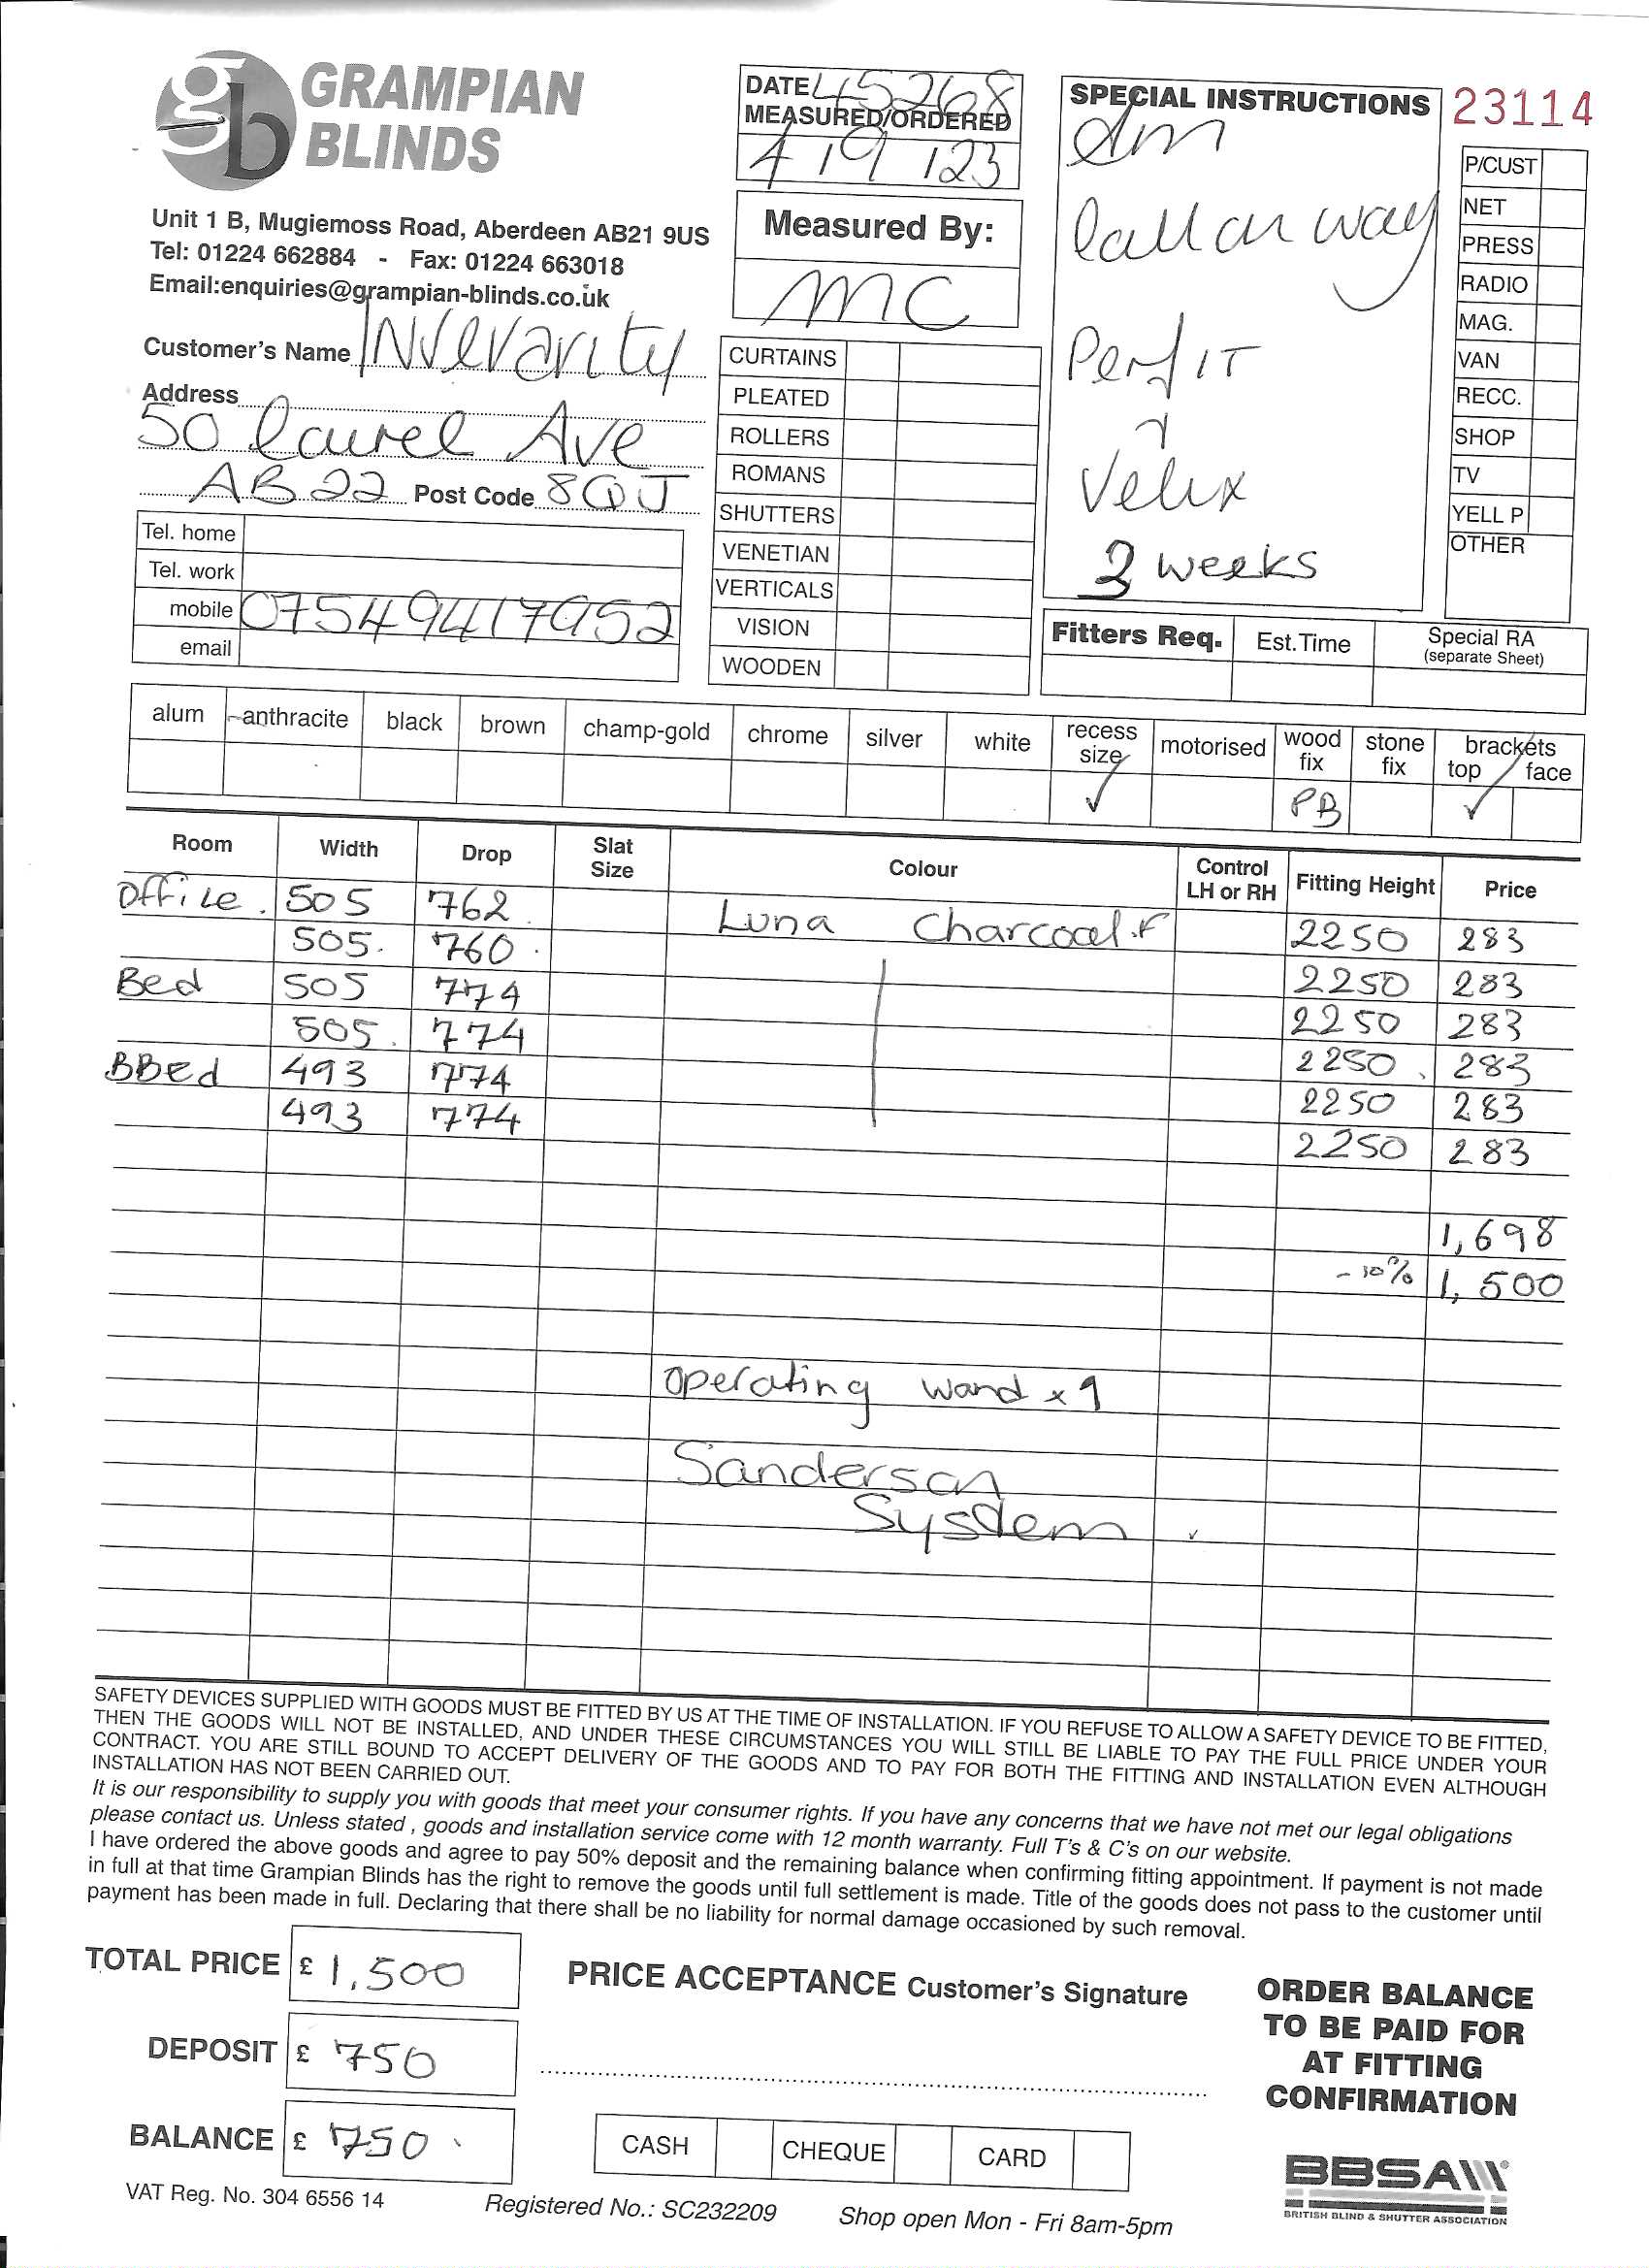 GRAMPIAN
BLINDS
Unit 1 B, Mugiemoss Road, Aberdeen AB21 9US
Tel: 01224 662884 - Fax: 01224 663018
Email:enquiries@grampian-blinds.co.uk
Customer's Name Inverarity
Address
50 Laurel Ave
AB22 Post Code 8QJ
Tel. home
Tel. work
mobile 07549417952
email
DATE 45268
MEASURED/ORDERED
4/9/23
Measured By:
MC
CURTAINS
PLEATED
ROLLERS
ROMANS
SHUTTERS
VENETIAN
VERTICALS
VISION
WOODEN
SPECIAL INSTRUCTIONS
Am
Call on way
Perfit
Velux
3 weeks
23114
P/CUST
NET
PRESS
RADIO
MAG.
VAN
RECC.
SHOP
TV
YELL P
OTHER
Fitters Req. Est.Time Special RA
(separate Sheet)
alum anthracite black brown champ-gold chrome silver white recess size motorised wood fix stone fix brackets top face
✓ PB ✓
Room Width Drop Slat Size Colour Control LH or RH Fitting Height Price
Office 505 762 Luna Charcoal.F 2250 283
505 760 2250 283
Bed 505 774 2250 283
505 774 2250 283
BBed 493 774 2250 283
493 774 2250 283
1,698
-10% 1,500
operating wand x 1
Sanderson
System
SAFETY DEVICES SUPPLIED WITH GOODS MUST BE FITTED BY US AT THE TIME OF INSTALLATION. IF YOU REFUSE TO ALLOW A SAFETY DEVICE TO BE FITTED,
THEN THE GOODS WILL NOT BE INSTALLED, AND UNDER THESE CIRCUMSTANCES YOU WILL STILL BE LIABLE TO PAY THE FULL PRICE UNDER YOUR
CONTRACT. YOU ARE STILL BOUND TO ACCEPT DELIVERY OF THE GOODS AND TO PAY FOR BOTH THE FITTING AND INSTALLATION EVEN ALTHOUGH
INSTALLATION HAS NOT BEEN CARRIED OUT.
It is our responsibility to supply you with goods that meet your consumer rights. If you have any concerns that we have not met our legal obligations
please contact us. Unless stated , goods and installation service come with 12 month warranty. Full T's & C's on our website.
I have ordered the above goods and agree to pay 50% deposit and the remaining balance when confirming fitting appointment. If payment is not made
in full at that time Grampian Blinds has the right to remove the goods until full settlement is made. Title of the goods does not pass to the customer until
payment has been made in full. Declaring that there shall be no liability for normal damage occasioned by such removal.
TOTAL PRICE £ 1,500
DEPOSIT £ 750
BALANCE £ 750
PRICE ACCEPTANCE Customer's Signature
CASH CHEQUE CARD
ORDER BALANCE
TO BE PAID FOR
AT FITTING
CONFIRMATION
BBSA
BRITISH BLIND & SHUTTER ASSOCIATION
VAT Reg. No. 304 6556 14 Registered No.: SC232209 Shop open Mon - Fri 8am-5pm